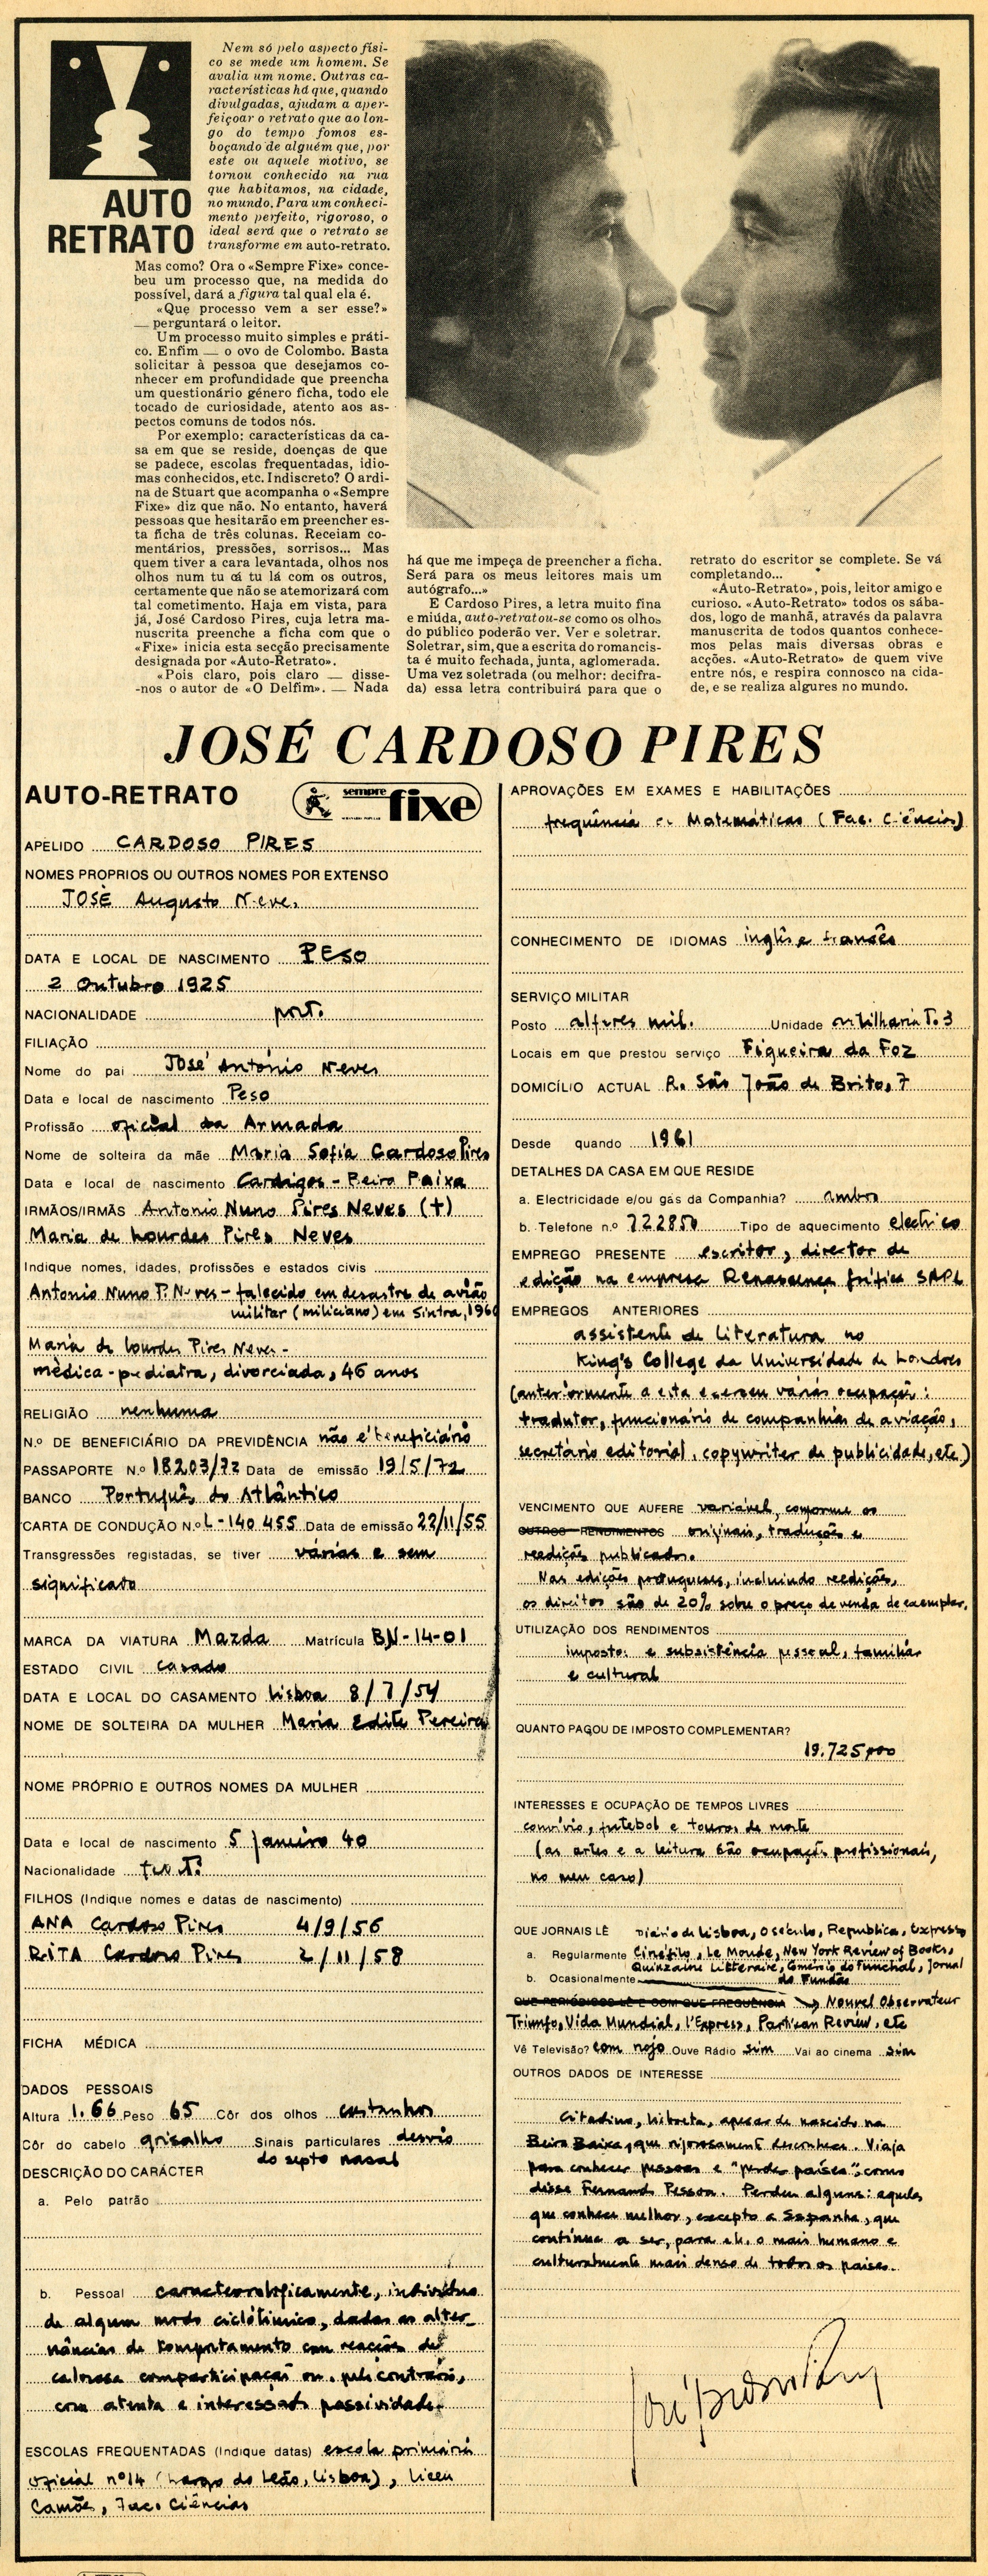 AUTO
RETRATO
Nem só pelo aspecto físi-
co se mede um homem. Se
avalia um nome. Outras ca-
racterísticas há que, quando
divulgadas, ajudam a aper-
feiçoar o retrato que ao lon-
go do tempo fomos es-
boçando de alguém que, por
este ou aquele motivo, se
tornou conhecido na rua
que habitamos, na cidade,
no mundo. Para um conheci-
mento perfeito, rigoroso, o
ideal será que o retrato se
transforme em auto-retrato.
Mas como? Ora o «Sempre Fixe» conce-
beu um processo que, na medida do
possível, dará a figura tal qual ela é.
«Que processo vem a ser esse?»
— perguntará o leitor.
Um processo muito simples e práti-
co. Enfim — o ovo de Colombo. Basta
solicitar à pessoa que desejamos co-
nhecer em profundidade que preencha
um questionário género ficha, todo ele
tocado de curiosidade, atento aos as-
pectos comuns de todos nós.
Por exemplo: características da ca-
sa em que se reside, doenças de que
se padece, escolas frequentadas, idio-
mas conhecidos, etc. Indiscreto? O ardi-
na de Stuart que acompanha o «Sempre
Fixe» diz que não. No entanto, haverá
pessoas que hesitarão em preencher es-
ta ficha de três colunas. Receiam co-
mentários, pressões, sorrisos... Mas
quem tiver a cara levantada, olhos nos
olhos num tu cá tu lá com os outros,
certamente que não se atemorizará com
tal cometimento. Haja em vista, para
já, José Cardoso Pires, cuja letra ma-
nuscrita preenche a ficha com que o
«Fixe» inicia esta secção precisamente
designada por «Auto-Retrato».
«Pois claro, pois claro — disse-
-nos o autor de «O Delfim». — Nada
há que me impeça de preencher a ficha.
Será para os meus leitores mais um
autógrafo...»
E Cardoso Pires, a letra muito fina
e miúda, auto-retratou-se como os olhos
do público poderão ver. Ver e soletrar.
Soletrar, sim, que a escrita do romancis-
ta é muito fechada, junta, aglomerada.
Uma vez soletrada (ou melhor: decifra-
da) essa letra contribuirá para que o
retrato do escritor se complete. Se vá
completando...
«Auto-Retrato», pois, leitor amigo e
curioso. «Auto-Retrato» todos os sába-
dos, logo de manhã, através da palavra
manuscrita de todos quantos conhece-
mos pelas mais diversas obras e
acções. «Auto-Retrato» de quem vive
entre nós, e respira connosco na cida-
de, e se realiza algures no mundo.
JOSÉ CARDOSO PIRES
AUTO-RETRATO
sempre fixe
APELIDO CARDOSO PIRES
NOMES PROPRIOS OU OUTROS NOMES POR EXTENSO
JOSÉ Augusto Neves
DATA E LOCAL DE NASCIMENTO PESO
2 Outubro 1925
NACIONALIDADE port.
FILIAÇÃO
Nome do pai José António Neves
Data e local de nascimento Peso
Profissão oficial da Armada
Nome de solteira da mãe Maria Sofia Cardoso Pires
Data e local de nascimento Cardigos - Beira Baixa
IRMÃOS/IRMÃS Antonio Nuno Pires Neves (+)
Maria de Lourdes Pires Neves
Indique nomes, idades, profissões e estados civis
Antonio Nuno P. Neves - falecido em desastre de avião
militar (miliciano) em Sintra, 1960
Maria de Lourdes Pires Neves -
médica-pediatra, divorciada, 46 anos
RELIGIÃO nenhuma
N.º DE BENEFICIÁRIO DA PREVIDÊNCIA não é beneficiário
PASSAPORTE N.º 18203/72 Data de emissão 19/5/72
BANCO Português do Atlântico
CARTA DE CONDUÇÃO N.º L-140 455 Data de emissão 22/11/55
Transgressões registadas, se tiver várias e sem
significado
MARCA DA VIATURA Mazda Matrícula BN-14-01
ESTADO CIVIL casado
DATA E LOCAL DO CASAMENTO Lisboa 8/7/54
NOME DE SOLTEIRA DA MULHER Maria Edite Pereira
NOME PRÓPRIO E OUTROS NOMES DA MULHER
Data e local de nascimento 5 Janeiro 40
Nacionalidade port.
FILHOS (Indique nomes e datas de nascimento)
ANA Cardoso Pires 4/9/56
RITA Cardoso Pires 2/11/58
FICHA MÉDICA
DADOS PESSOAIS
Altura 1.66 Peso 65 Côr dos olhos castanhos
Côr do cabelo grisalho Sinais particulares desvio
do septo nasal
DESCRIÇÃO DO CARÁCTER
a. Pelo patrão
b. Pessoal caracterologicamente, indivíduo
de algum modo ciclotímico, dadas as alter-
nâncias de comportamento com reacções de
calorosa comparticipação ou, pelo contrário,
com atenta e interessada passividade.
ESCOLAS FREQUENTADAS (Indique datas) escola primária
oficial nº14 (Largo do Leão, Lisboa), liceu
Camões, Fac. Ciências
APROVAÇÕES EM EXAMES E HABILITAÇÕES
frequência de Matemáticas (Fac. Ciências)
CONHECIMENTO DE IDIOMAS inglês e francês
SERVIÇO MILITAR
Posto alferes mil. Unidade artilharia T. 3
Locais em que prestou serviço Figueira da Foz
DOMICÍLIO ACTUAL R. São João de Brito, 7
Desde quando 1961
DETALHES DA CASA EM QUE RESIDE
a. Electricidade e/ou gás da Companhia? ambos
b. Telefone n.º 722850 Tipo de aquecimento electrico
EMPREGO PRESENTE escritor, director de
edição na empresa Renascença Gráfica SARL
EMPREGOS ANTERIORES
assistente de literatura no
King's College da Universidade de Londres
(anteriormente a esta exerceu várias ocupações:
tradutor, funcionário de companhias de aviação,
secretário editorial, copywriter de publicidade, etc)
VENCIMENTO QUE AUFERE variável, conforme os
OUTROS RENDIMENTOS originais, traduções e
reedições publicados.
Nas edições portuguesas, incluindo reedições,
os direitos são de 20% sobre o preço de venda de exemplar.
UTILIZAÇÃO DOS RENDIMENTOS
impostos e subsistência pessoal, familiar
e cultural
QUANTO PAGOU DE IMPOSTO COMPLEMENTAR?
19.725$00
INTERESSES E OCUPAÇÃO DE TEMPOS LIVRES
convívio, futebol e touros de morte
(as artes e a leitura são ocupações profissionais,
no meu caso)
QUE JORNAIS LÊ Diário de Lisboa, O Século, República, Expresso
a. Regularmente Cinéfilo, Le Monde, New York Review of Books,
Quinzaine Littéraire, Comércio do Funchal, Jornal
b. Ocasionalmente do Fundão
QUE PERIÓDICOS LÊ E COM QUE FREQUÊNCIA → Nouvel Observateur
Triunfo, Vida Mundial, l'Express, Partisan Review, etc
Vê Televisão? com nojo Ouve Rádio sim Vai ao cinema sim
OUTROS DADOS DE INTERESSE
Citadino, lisboeta, apesar de nascido na
Beira Baixa, que rigorosamente desconhece. Viaja
para conhecer pessoas e "perder países", como
disse Fernando Pessoa. Perdeu alguns: aqueles
que conhece melhor, excepto a Espanha, que
continua a ser, para ele, o mais humano e
culturalmente mais denso de todos os países.
José Cardoso Pires